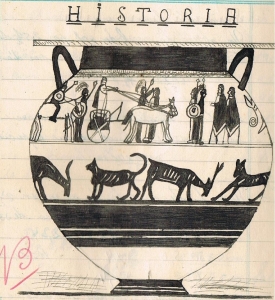 HISTORIA
VB